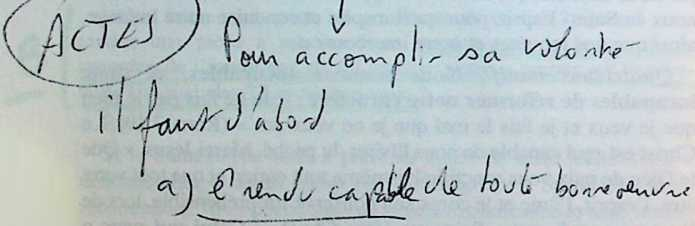 ACTES Pour accomplir sa volonté
il faut d'abord
a) ê rendu capable de toute bonne oeuvre